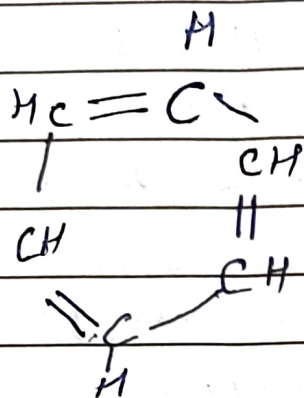 H
HC = C
CH
||
CH
CH
C
H